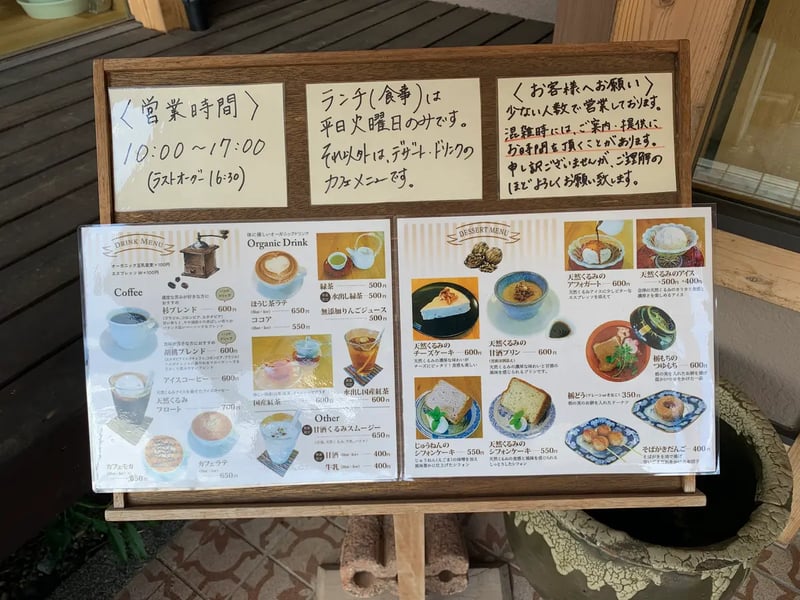 〈営業時間〉
10:00～17:00
(ラストオーダー 16:30)
ランチ(食事)は
平日火曜日のみです。
それ以外は、デザート・ドリンクの
カフェメニューです。
〈お客様へお願い〉
少ない人数で営業しております。
混雑時には、ご案内・提供に
お時間を頂くことがあります。
申し訳ございませんが、ご理解の
ほどよろしくお願い致します。
DRINK MENU
オーガニック豆乳変更+100円
エスプレッソW+100円
Coffee
杉ブレンド 600円
胡桃ブレンド 600円
アイスコーヒー 600円
天然くるみ
フロート 700円
カフェモカ
650円
カフェラテ
650円
体の優しいオーガニックドリンク
Organic Drink
ほうじ茶ラテ
650円
ココア
550円
国産紅茶
緑茶 500円
水出し緑茶 500円
無添加りんごジュース
500円
水出し国産紅茶
600円
Other
甘酒くるみスムージー
650円
甘酒 400円
牛乳 400円
DESSERT MENU
天然くるみの
チーズケーキ 600円
天然くるみの
甘酒プリン 600円
天然くるみの
アフォガート 600円
天然くるみのアイス
500円 400円
栃もちの
つゆもち 600円
じゅうねんの
シフォンケーキ 550円
天然くるみの
シフォンケーキ 550円
栃どら 350円
そばがきだんご 400円